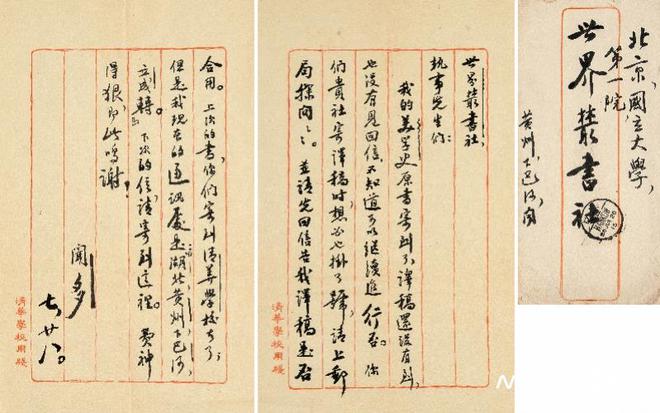 北京，國立大學，
第一院，
世界叢書社
黃州下巴河聞
世界叢書社，
執事先生們：
我的美學史原書寄到了，譯稿還沒有到，
也沒有見回信，不知道可以繼續進行否。你
們貴社寄譯稿時，想必也掛了號，請上郵
局探問々。並請先回信告我譯稿是否
清華學校用牋
合用。上次的書你們寄到清華學校去了；
但是我現在的通訊處是湖北黃州下巴河，
轉。下次的信請寄到這裡。費神
得狠，即此鳴謝！
聞多
七廿八。
清華學校用牋